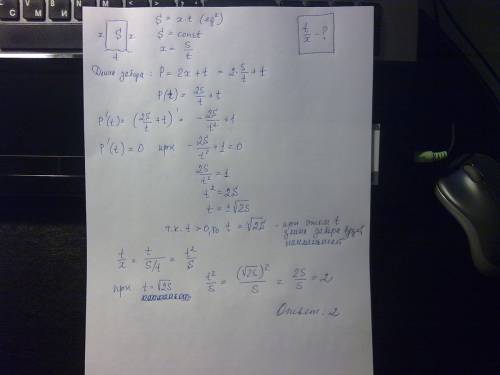 x S x t
S = x·t (ед²)
S = const
x = S/t
t/x - ?
Длина забора : P = 2x + t = 2·S/t + t
P(t) = 2S/t + t
P'(t) = (2S/t + t)' = -2S/t² + 1
P'(t) = 0 при -2S/t² + 1 = 0
2S/t² = 1
t² = 2S
t = ±√2S
т.к. t > 0, то t = √2S - при этом t
длина забора будет
наименьшей
t/x = t/S/t = t²/S
при t = √2S t²/S = (√2S)²/S = 2S/S = 2
Ответ: 2